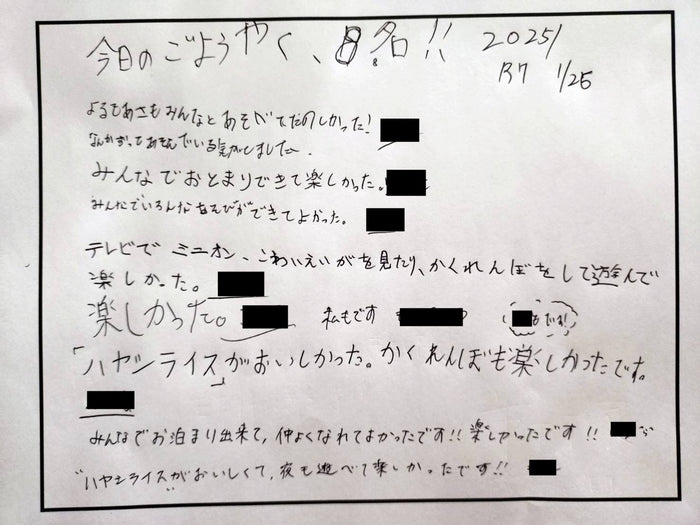 今日のごようやく、8名!!
2025/
R7 1/25
よるもあさもみんなとあそべてたのしかった!
なんかずっとあそんでいる気がしました。
みんなでおとまりできて楽しかった。
みんなでいろんなあそびができてよかった。
テレビでミニオン、こわいえいがを見たり、かくれんぼをして遊んで
楽しかった。
楽しかった。 私もです もだよ!
「ハヤシライス」がおいしかった。かくれんぼも楽しかったです。
みんなでお泊まり出来て、仲よくなれてよかったです!! 楽しかったです!!
"ハヤシライス"がおいしくて、夜も遊べて楽しかったです!!